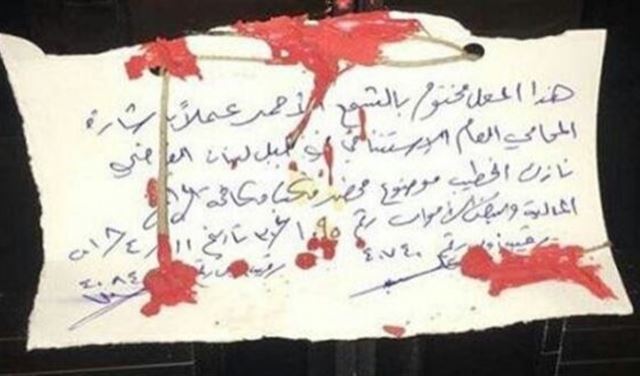 هذا المحل مختوم بالشمع الأحمر عملاً بإشارة
المحامي العام الإستئنافي في جبل لبنان القاضي
نازك الخطيب موضوع محضر مكتب مكافحة
المالية وتبييض الأموال رقم تاريخ ١١/٤/٢٠١٨
رقم ٤٧٤٠ رقم ٤٠٨٤